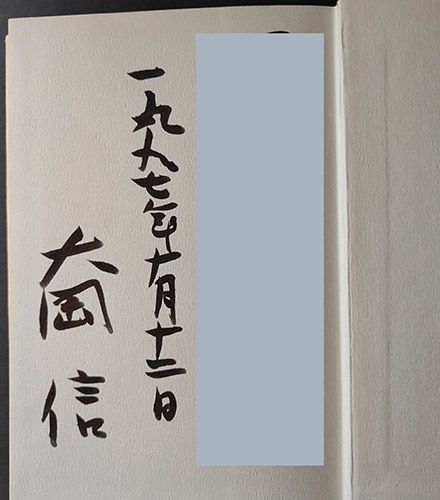 一九九七年十月十二日
大岡 信